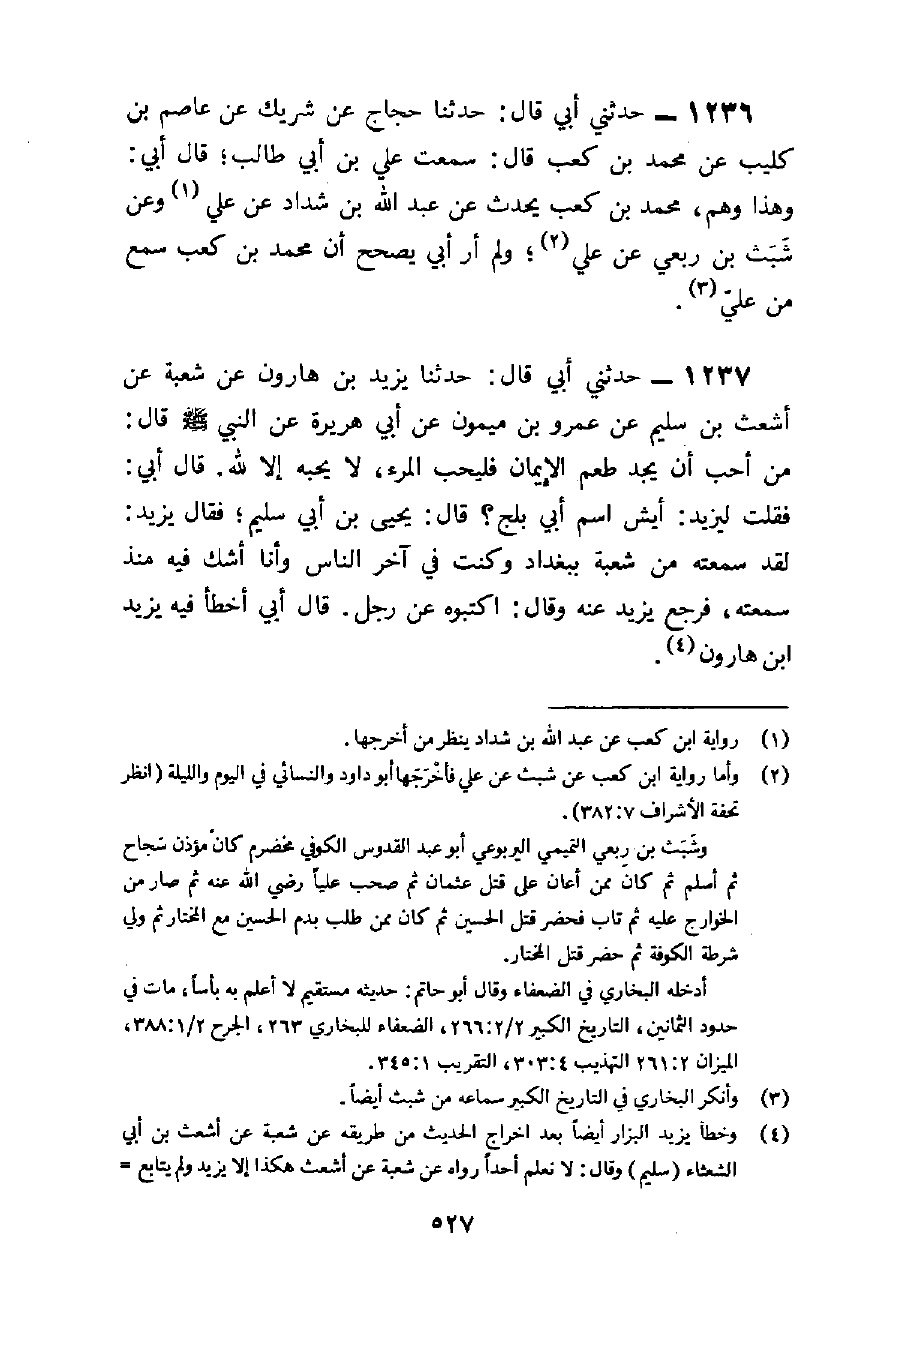 ١٢٣٦ – حدثني أبي قال: حدثنا حجاج عن شريك عن عاصم بن
كليب عن محمد بن كعب قال: سمعت علي بن أبي طالب؛ قال أبي:
وهذا وهم، محمد بن كعب يحدث عن عبد الله بن شداد عن علي (١) وعن
شَبَث بن ربعي عن علي (٢)؛ ولم أر أبي يصحح أن محمد بن كعب سمع
من عليّ (٣).
١٢٣٧ – حدثني أبي قال: حدثنا يزيد بن هارون عن شعبة عن
أشعث بن سليم عن عمرو بن ميمون عن أبي هريرة عن النبي ﷺ قال:
من أحب أن يجد طعم الإيمان فليحب المرء، لا يحبه إلا لله. قال أبي:
فقلت ليزيد: أيش اسم أبي بلج؟ قال: يحيى بن أبي سليم؛ فقال يزيد:
لقد سمعته من شعبة ببغداد وكنت في آخر الناس وأنا أشك فيه منذ
سمعته، فرجع يزيد عنه وقال: اكتبوه عن رجل. قال أبي أخطأ فيه يزيد
ابن هارون (٤).
(١) رواية ابن كعب عن عبد الله بن شداد ينظر من أخرجها.
(٢) وأما رواية ابن كعب عن شبث عن علي فأخرَجَها أبو داود والنسائي في اليوم والليلة (انظر
تحفة الأشراف ٧: ٣٨٢).
وشَبَث بن رِبعي التميمي اليربوعي أبو عبد القدوس الكوفي مخضرم كان مؤذن سَجاح
ثم أسلم ثم كان ممن أعان على قتل عثمان ثم صحب علياً رضي الله عنه ثم صار من
الخوارج عليه ثم تاب فحضر قتل الحسين ثم كان ممن طلب بدم الحسين مع المختار ثم ولي
شرطة الكوفة ثم حضر قتل المختار.
أدخله البخاري في الضعفاء وقال أبو حاتم: حديثه مستقيم لا أعلم به بأساً، مات في
حدود الثمانين، التاريخ الكبير ٢/٢: ٢٦٦، الضعفاء للبخاري ٢٦٣، الجرح ١/٢: ٣٨٨،
الميزان ٢: ٢٦١ التهذيب ٤: ٣٠٣، التقريب ١: ٣٤٥.
(٣) وأنكر البخاري في التاريخ الكبير سماعه من شبث أيضاً.
(٤) وخطأ يزيد البزار أيضاً بعد اخراج الحديث من طريقه عن شعبة عن أشعث بن أبي
الشعثاء (سليم) وقال: لا نعلم أحداً رواه عن شعبة عن أشعث هكذا إلا يزيد ولم يتابع =
٥٢٧